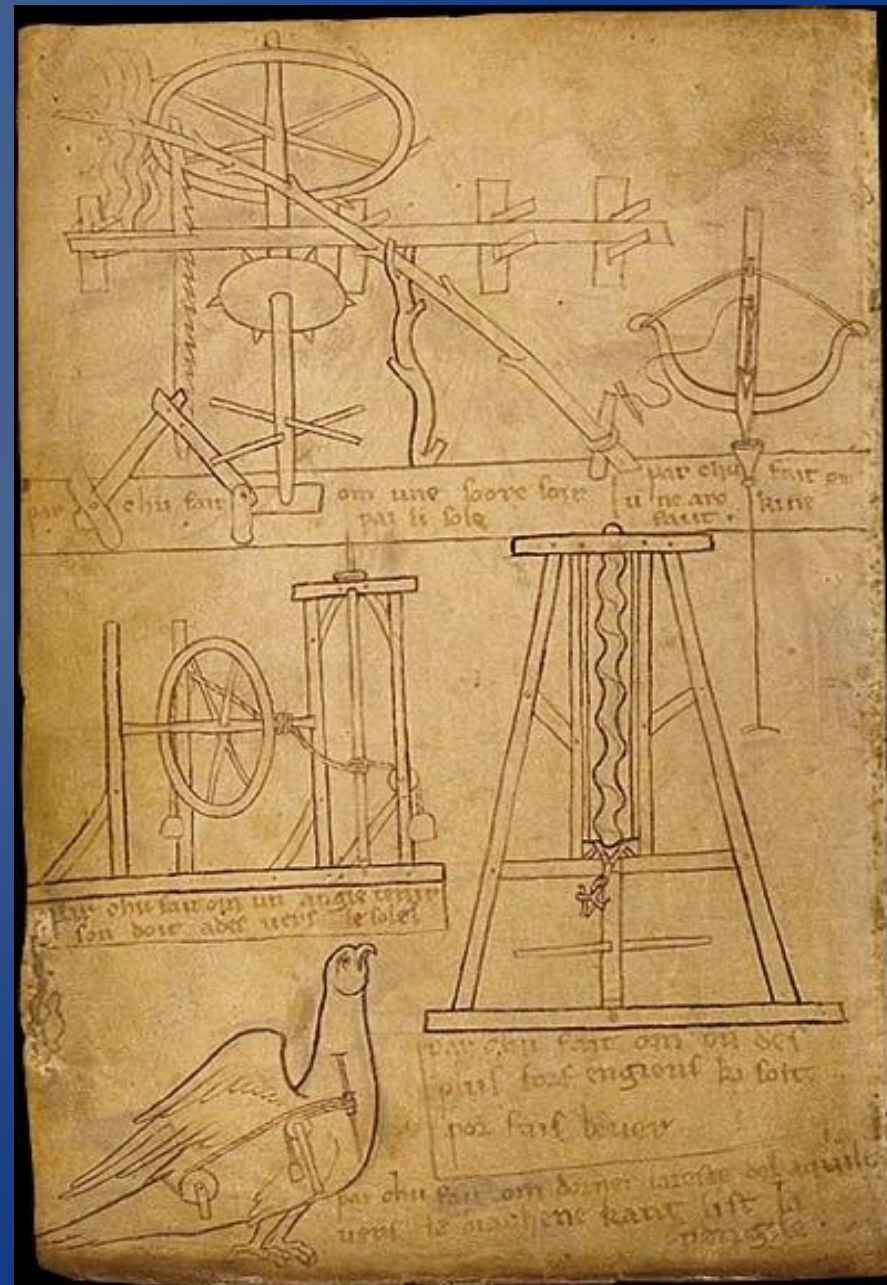 par chu fait om une soore soir
par li sole
par chu fait om
u ne arc kine
faut .
par chu fait om un angle tenir
son doit ades vers le solel
par chu fait om on des
plus fors engiens ki soit
por fais lever
par chu fait om dorner la teste del aquile
vers le diachene kant list la
vengile .